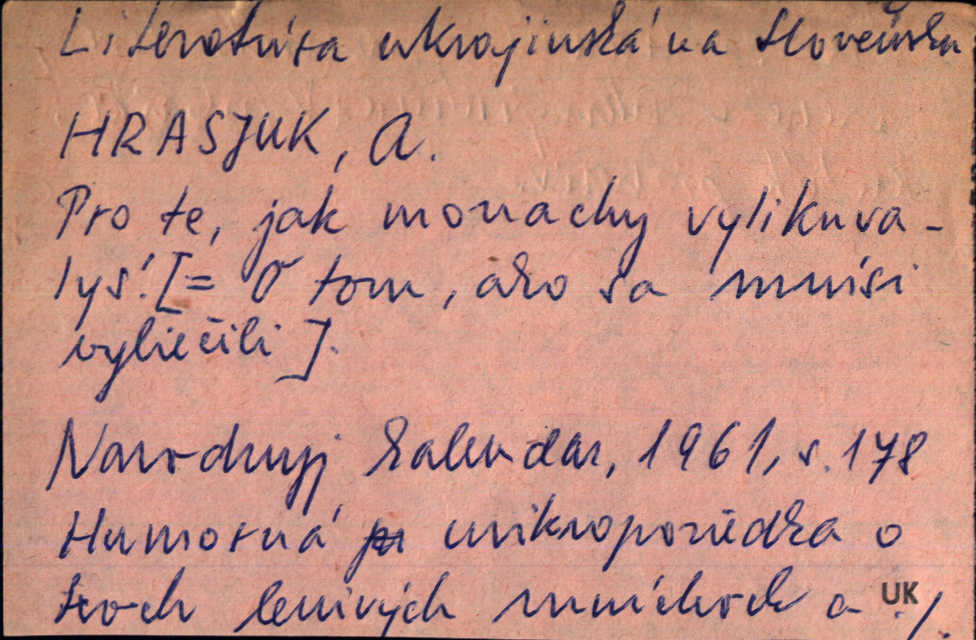 Literatúra ukrajinská na Slovensku
HRASJUK, A.
Pro te, jak monachy vylikuva-
lys'. [= O tom, ako sa mnísi
vyliečili].
Narodnyj kalendar, 1961, s. 178
Humorná mikropoviedka o
troch lenivých mníchoch a ./.
UK